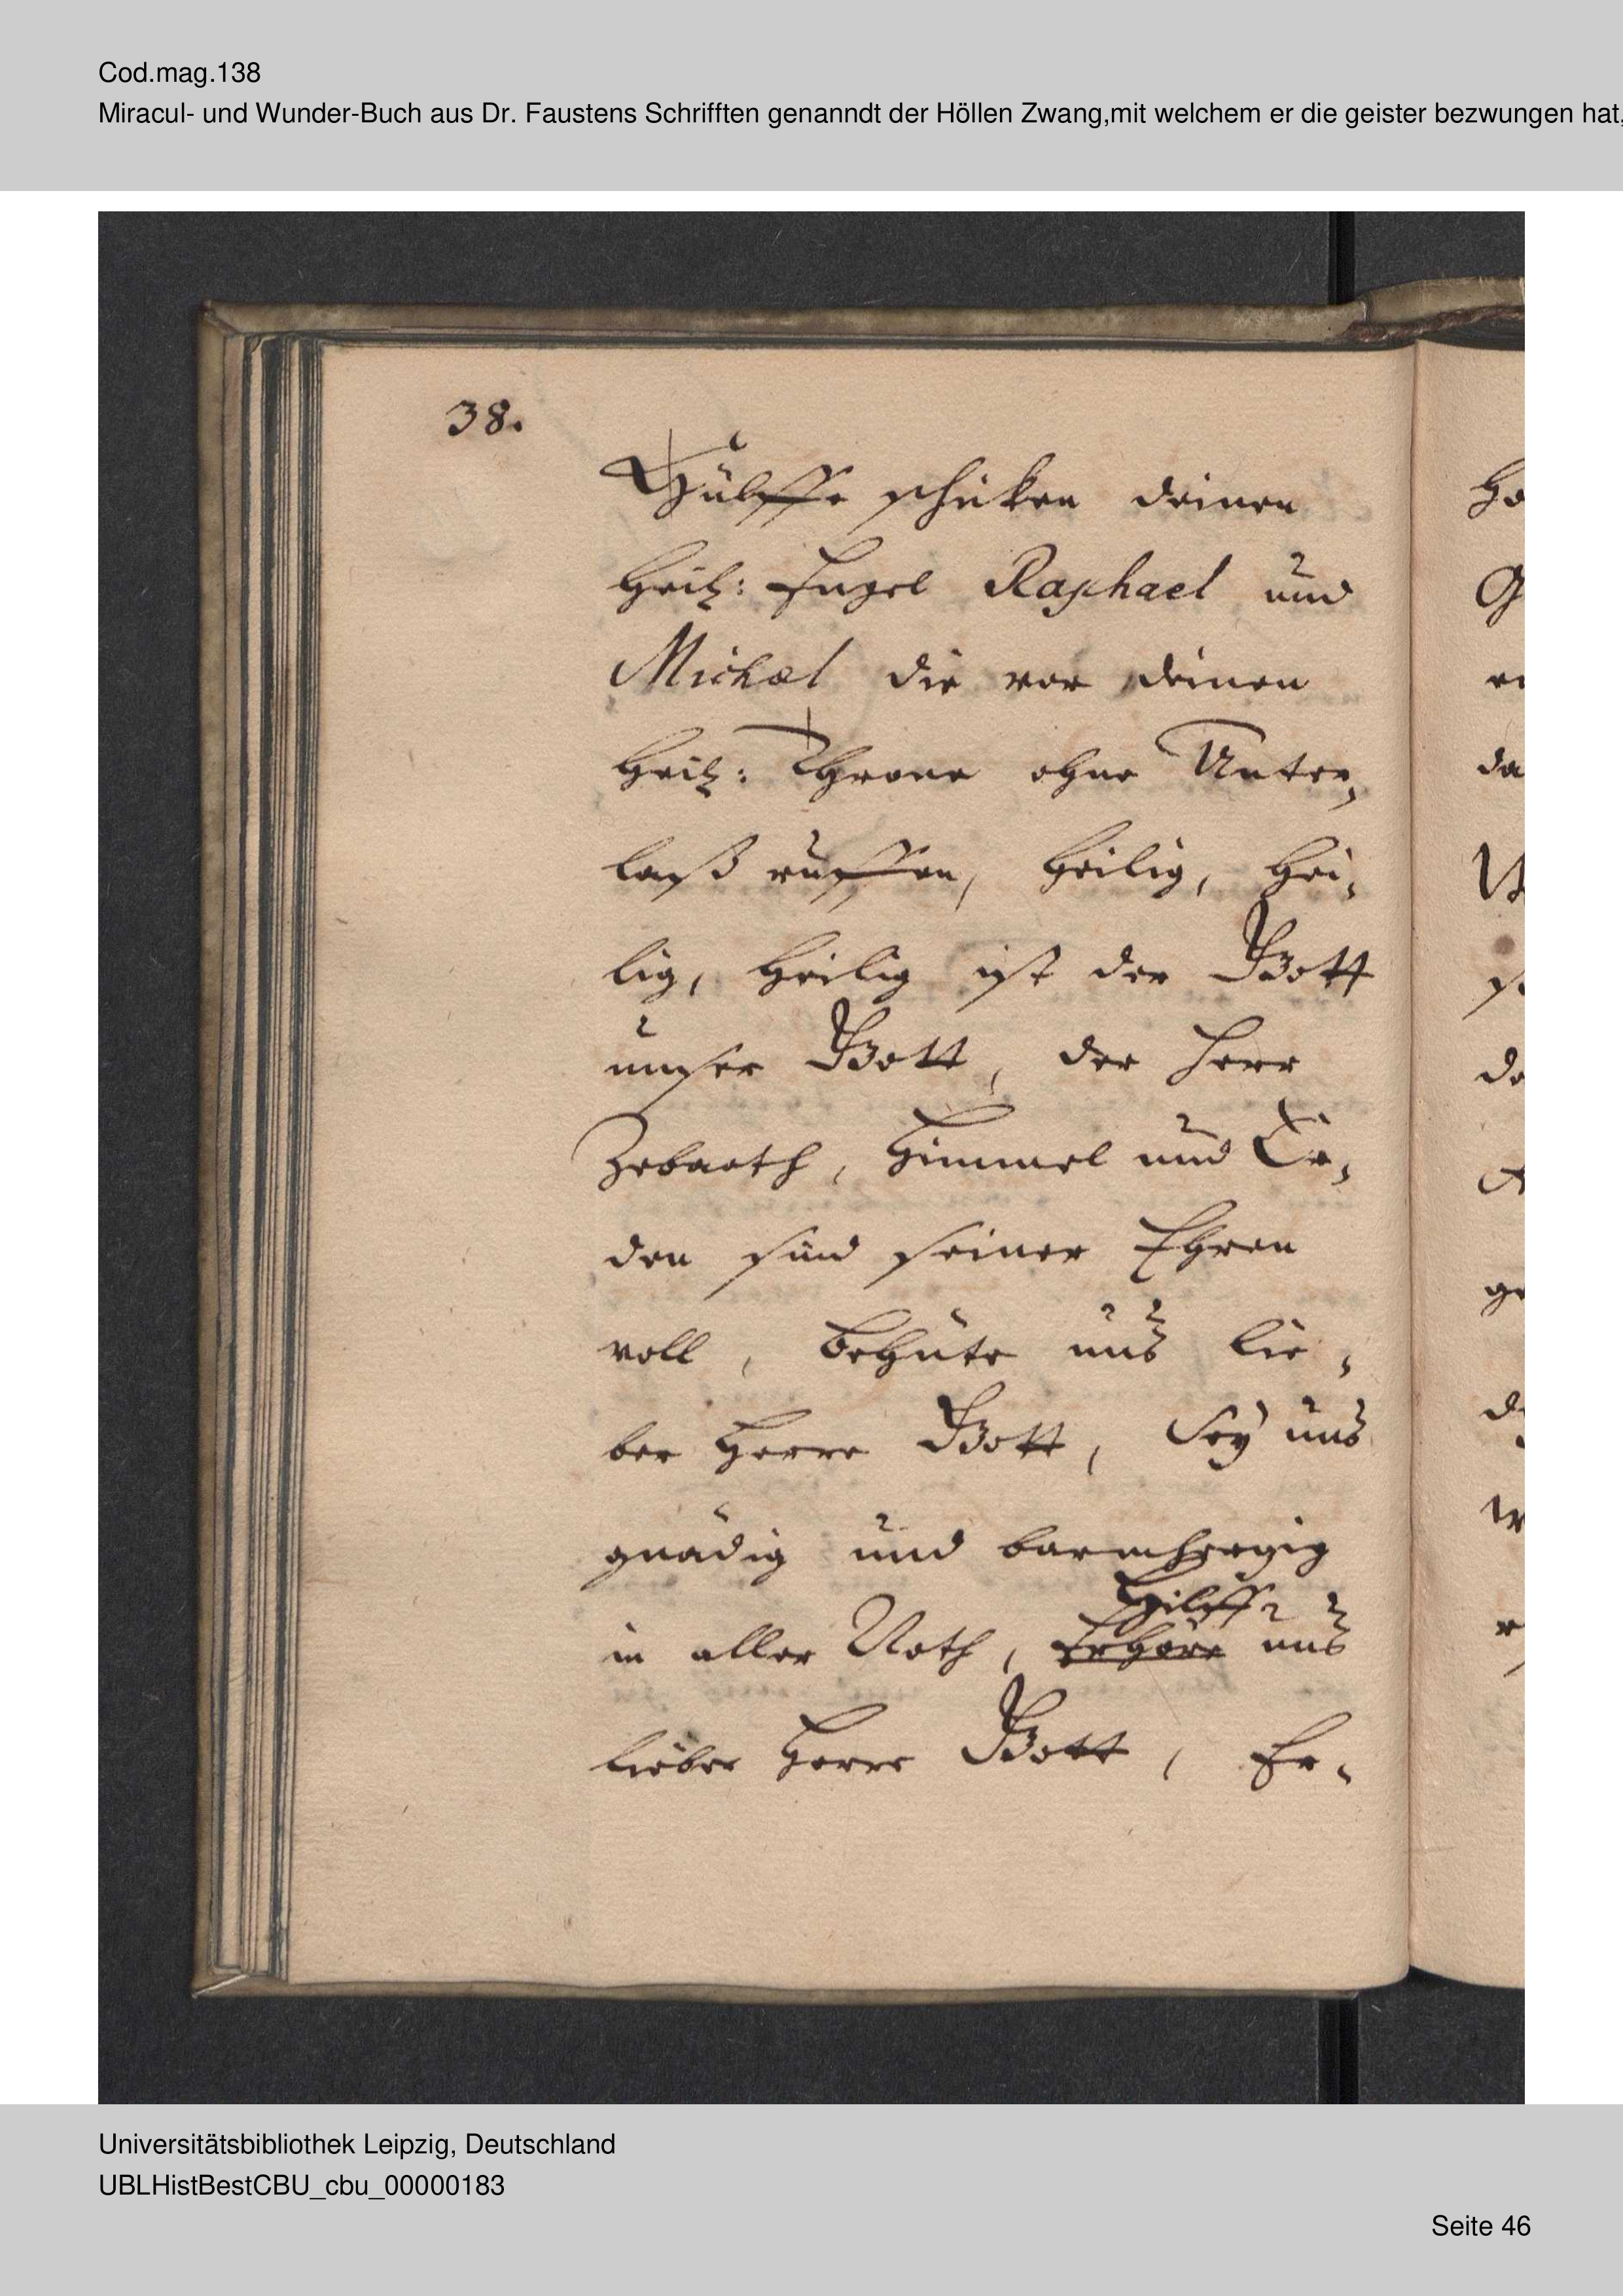 Cod.mag.138
Miracul- und Wunder-Buch aus Dr. Faustens Schrifften genanndt der Höllen Zwang,mit welchem er die geister bezwungen hat,
38.
Hülffe schicken deinen
Heil: Engel Raphael und
Michael die vor deinen
Heil: Throne ohne Unter,
laß ruffen, heilig, hei,
lig, heilig ist der Gott
unser Gott, der Herr
Zebaoth, Himmel und Er,
den sind seiner Ehren
voll, behüte uns lie,
ber Herre Gott, Sey uns
gnädig und barmhertzig
Hilff
in aller Noth, Erhöre uns
lieber Herre Gott, Er,
Universitätsbibliothek Leipzig, Deutschland
UBLHistBestCBU_cbu_00000183
Seite 46